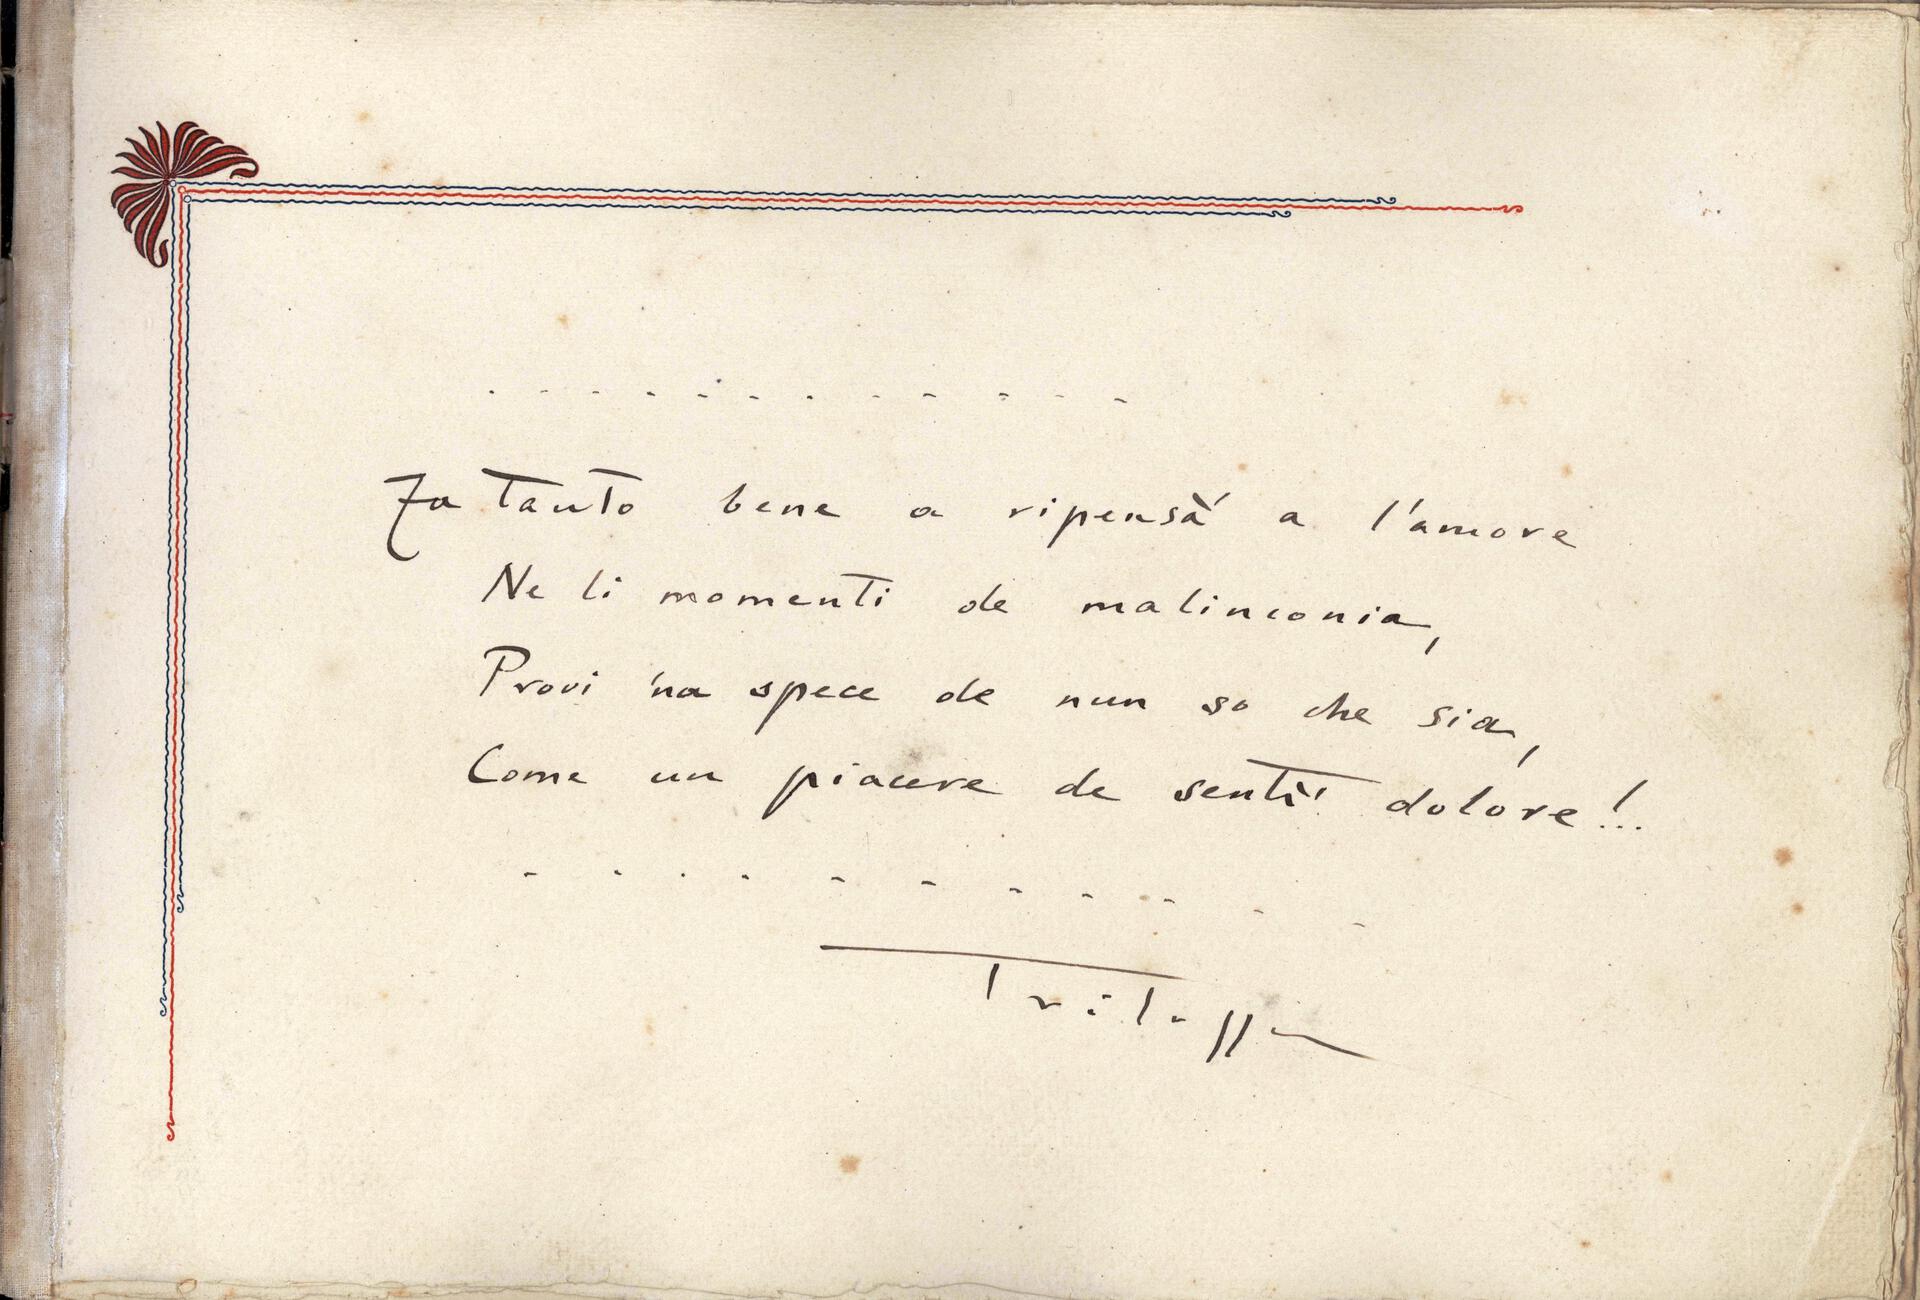 . . . . . . . . . . . .
Fa tanto bene a ripensà' a l'amore
Ne li momenti de malinconia,
Provi 'na spece de nun so che sia,
Come un piacere de sentì' dolore!...
. . . . . . . . . . .
Trilussa